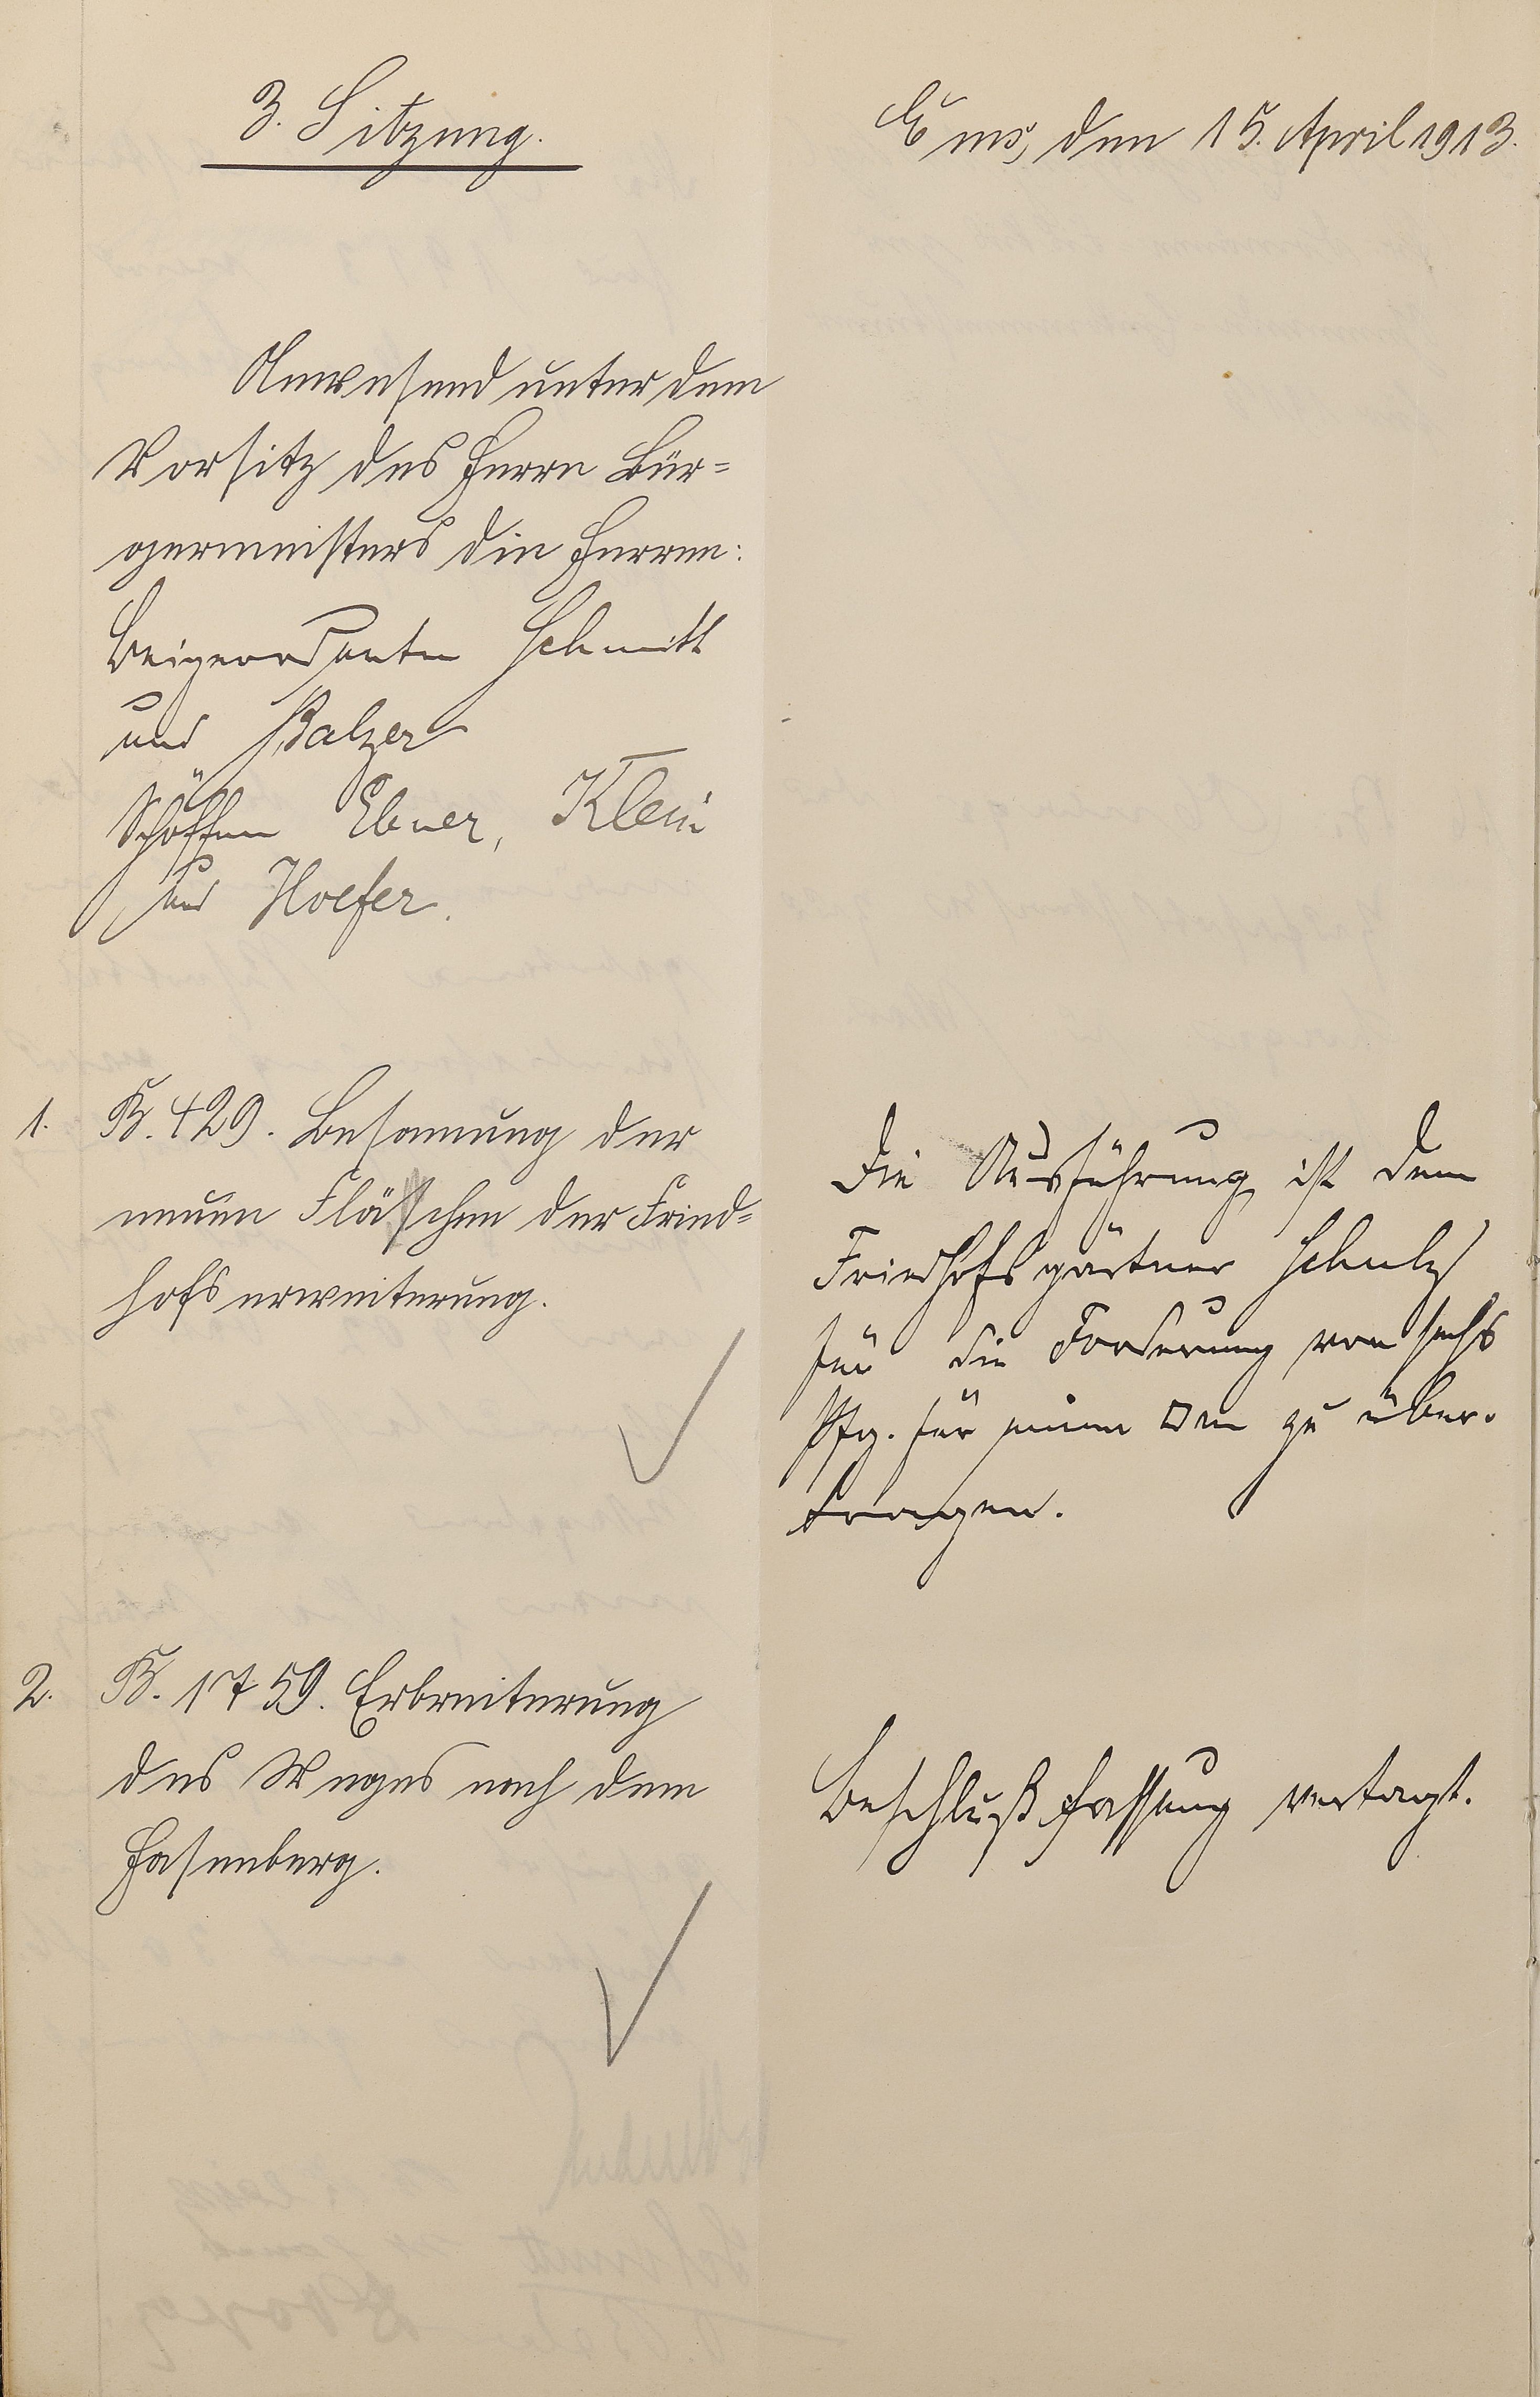 3. Sitzung.
Ems, den 15. April 1913.
Anwesend unter dem
Vorsitz des Herrn Bür=
germeisters die Herren:
Beigeordneten Schmitt
und Balzer
Schöffen Ebner, Klein
und Hoefer.
1. B. 429. Besamung der
neuen Flächen der Fried=
hofserweiterung.
Die Ausführung ist dem
Friedhofsgärtner Schulz
für die Forderung von sechs
Pfg. für einen □m zu über-
tragen.
2. B. 1759. Erbreiterung
des Weges nach dem
Hasenberg.
Beschlußfassung vertagt.